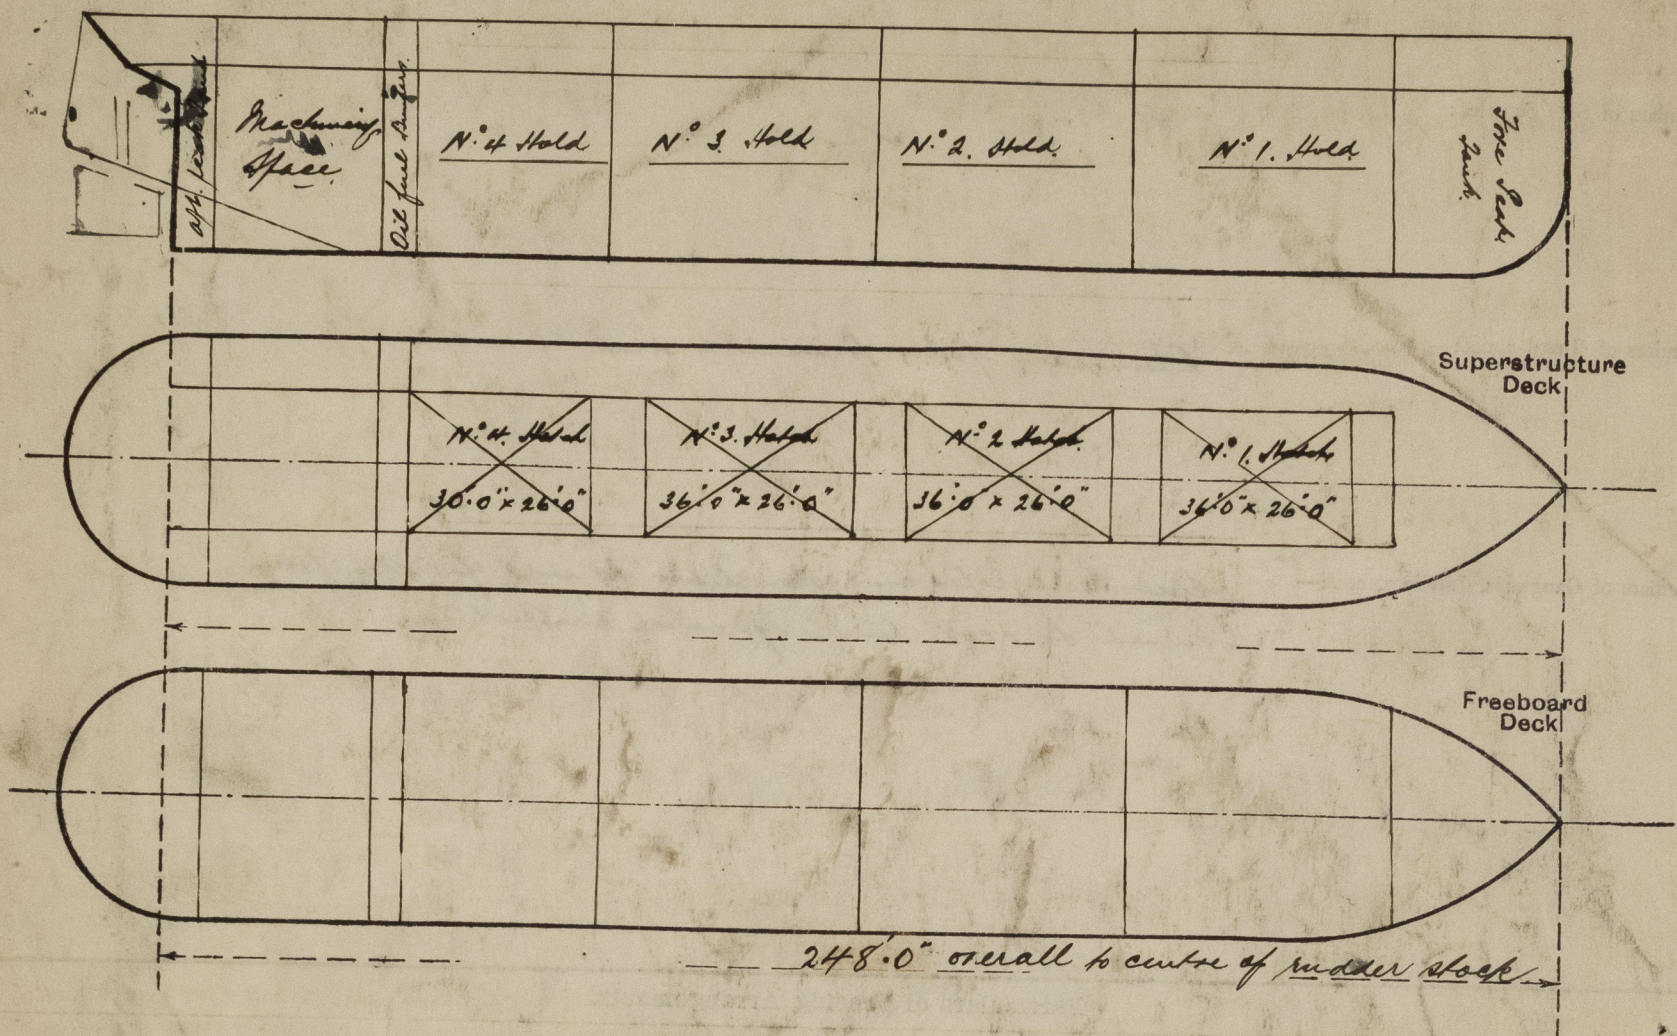 Aft. peak tank
Machinery
Space.
Oil fuel Bunkers.
No. 4 Hold
No. 3. Hold
No. 2. Hold.
No. 1. Hold.
Fore Peak
Tank.
Superstructure
Deck
No. 4. Hatch
30'.0" x 26'.0"
No. 3. Hatch
36'.0" x 26'.0"
No. 2 Hatch.
36'.0" x 26'.0"
No. 1. Hatch
36'.0" x 26'.0"
Freeboard
Deck
248'.0" overall to centre of rudder stock